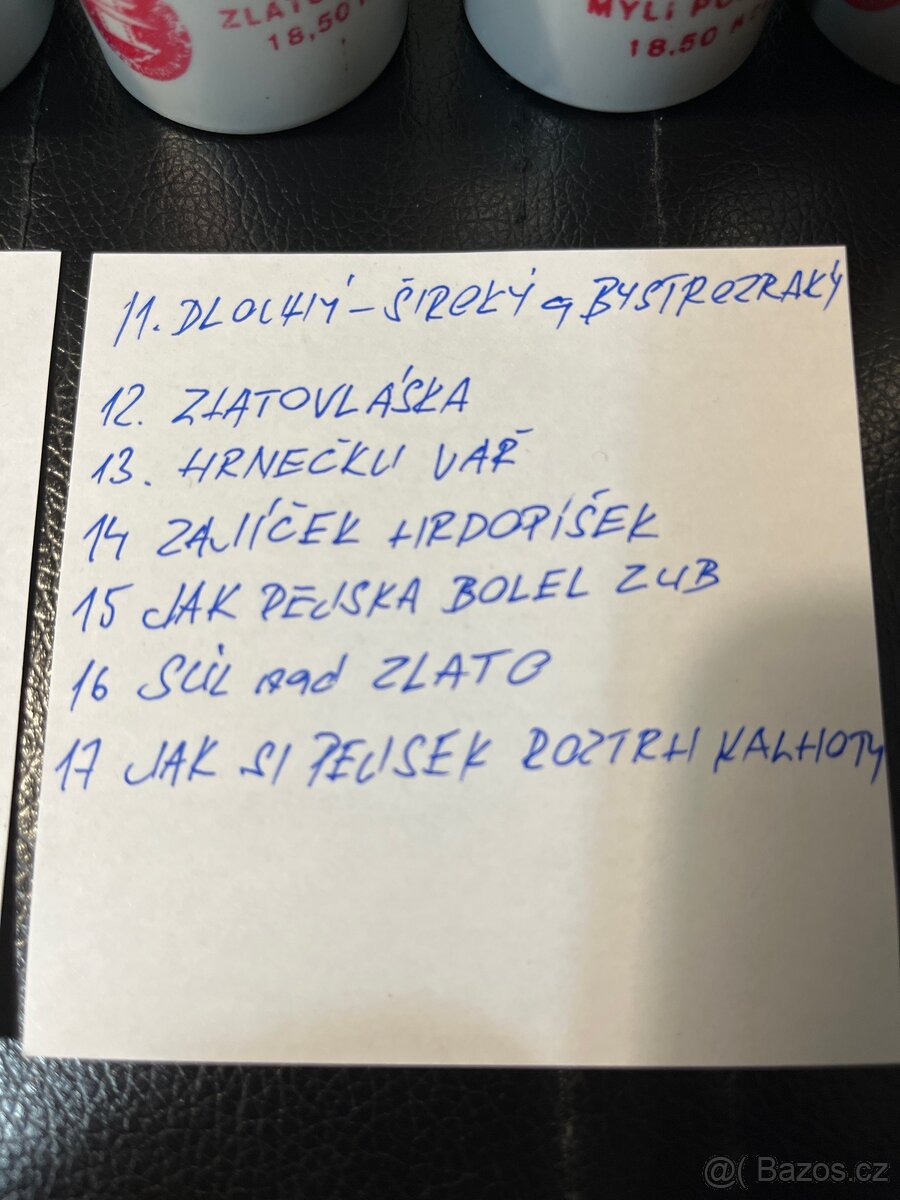 ZLATO
18,50
MYLI PO
18.50 K
11. DLOUHÝ – ŠIROKÝ a BYSTROZRAKÝ
12. ZLATOVLÁSKA
13. HRNEČKU VAŘ
14 ZAJÍČEK HRDOPÍŠEK
15 JAK PEJSKA BOLEL ZUB
16 SŮL nad ZLATO
17 JAK SI PEJSEK ROZTRH KALHOTY
@( Bazos.cz